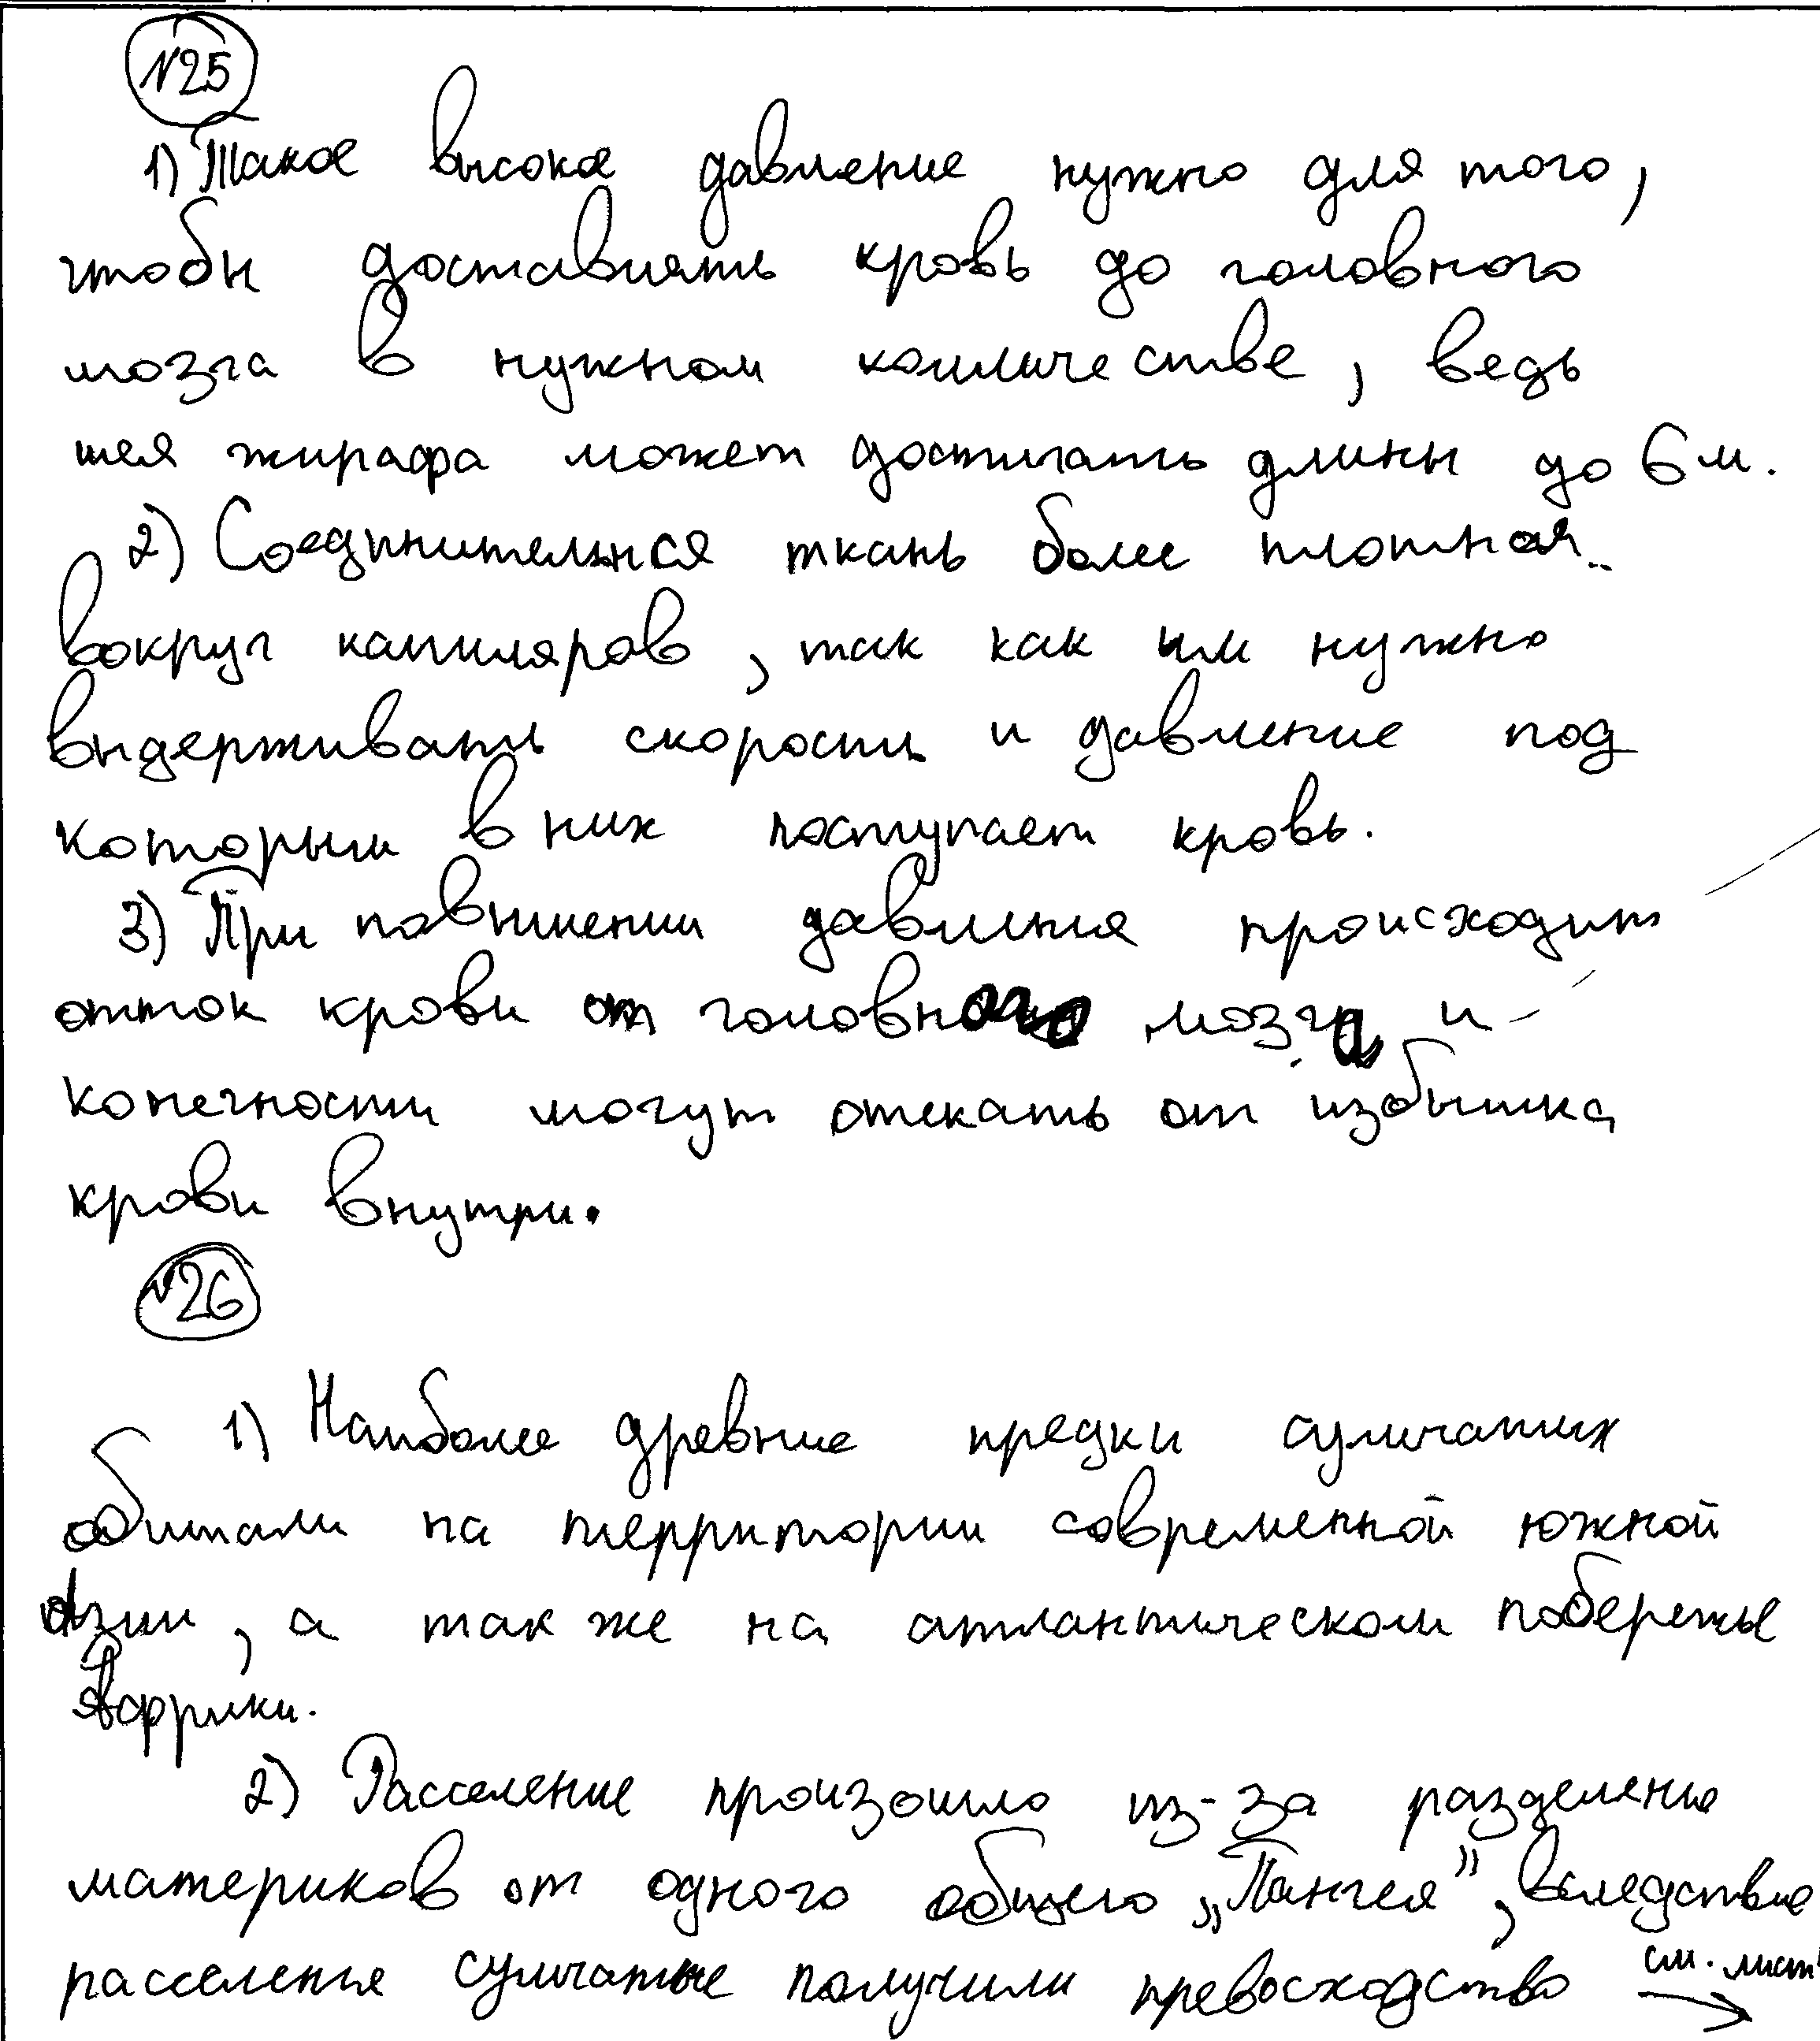 №25
1) Такое высокое давление нужно для того,
чтобы доставлять кровь до головного
мозга в нужном количестве, ведь
шея жирафа может достигать длины до 6 м.
2) Соединительная ткань более плотная
вокруг капиляров, так как им нужно
выдерживать скорость и давление под
которым в них поступает кровь.
3) При повышении давления происходит
отток крови от головного мозга и
конечности могут отекать от избытка
крови внутри.
№26
1) Наиболее древние предки сумчатых
обитали на территории современной южной
Азии, а так же на атлантическом побережье
Африки.
2) Расселение произошло из-за разделение
материков от одного общего „Пангея”, вследствие
расселенья сумчатые получили превосходство см. лист